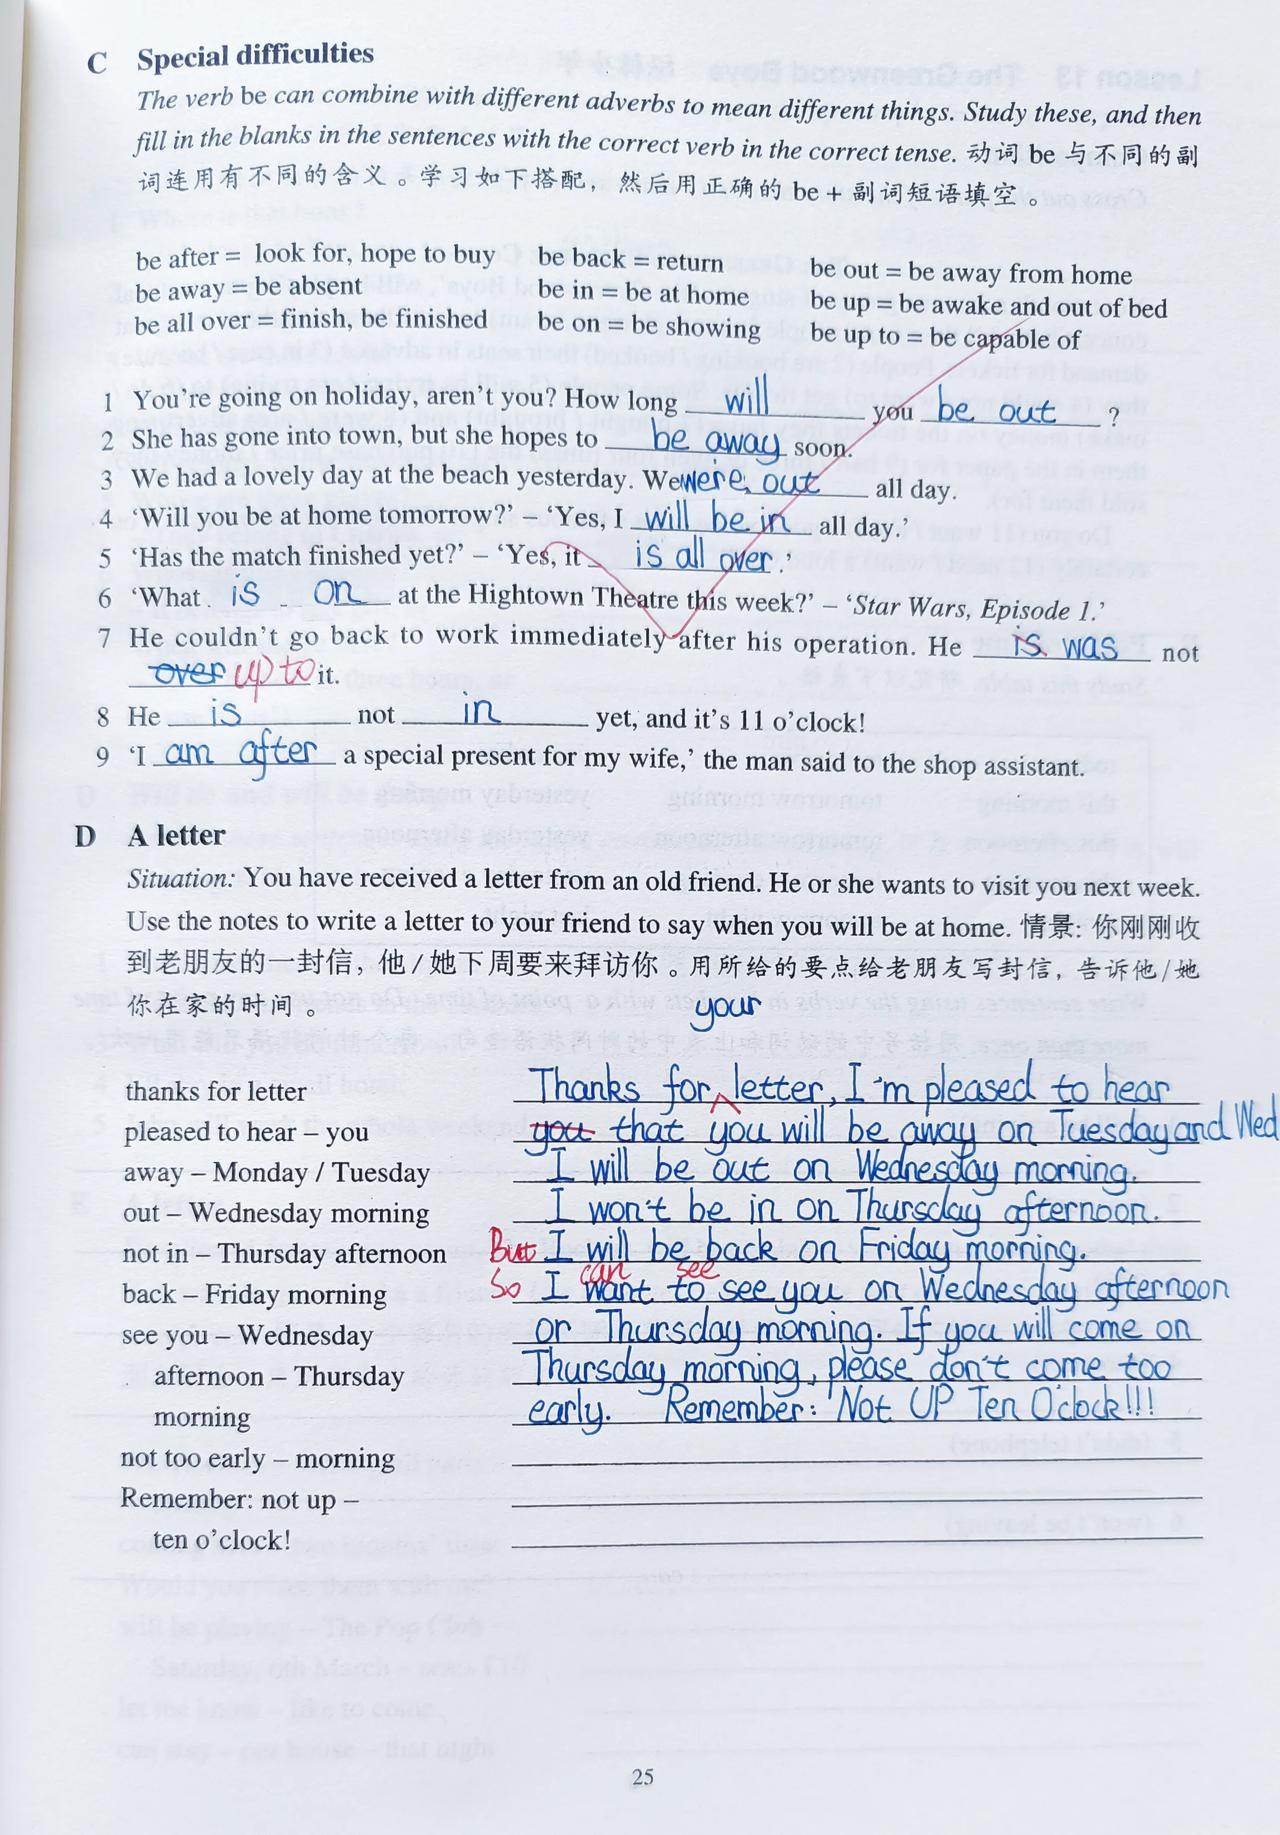 C Special difficulties
The verb be can combine with different adverbs to mean different things. Study these, and then
fill in the blanks in the sentences with the correct verb in the correct tense. 动词 be 与不同的副
词连用有不同的含义。学习如下搭配，然后用正确的 be + 副词短语填空。
be after = look for, hope to buy be back = return be out = be away from home
be away = be absent be in = be at home be up = be awake and out of bed
be all over = finish, be finished be on = be showing be up to = be capable of
1 You're going on holiday, aren't you? How long will you be out ?
2 She has gone into town, but she hopes to be away soon.
3 We had a lovely day at the beach yesterday. We were out all day.
4 'Will you be at home tomorrow?' – 'Yes, I will be in all day.'
5 'Has the match finished yet?' – 'Yes, it is all over.
6 'What is on at the Hightown Theatre this week?' – 'Star Wars, Episode 1.'
7 He couldn't go back to work immediately after his operation. He is was not
over up to it.
8 He is not in yet, and it's 11 o'clock!
9 'I am after a special present for my wife,' the man said to the shop assistant.
D A letter
Situation: You have received a letter from an old friend. He or she wants to visit you next week.
Use the notes to write a letter to your friend to say when you will be at home. 情景: 你刚刚收
到老朋友的一封信，他/她下周要来拜访你。用所给的要点给老朋友写封信，告诉他/她
你在家的时间。
your
thanks for letter Thanks for letter, I'm pleased to hear
pleased to hear – you you that you will be away on Tuesday and Wed
away – Monday / Tuesday I will be out on Wednesday morning.
out – Wednesday morning I won't be in on Thursday afternoon.
not in – Thursday afternoon But I will be back on Friday morning.
can see
back – Friday morning So I want to see you on Wednesday afternoon
see you – Wednesday or Thursday morning. If you will come on
afternoon – Thursday Thursday morning, please don't come too
morning early. Remember: Not UP Ten O'clock!!!
not too early – morning
Remember: not up –
ten o'clock!
25